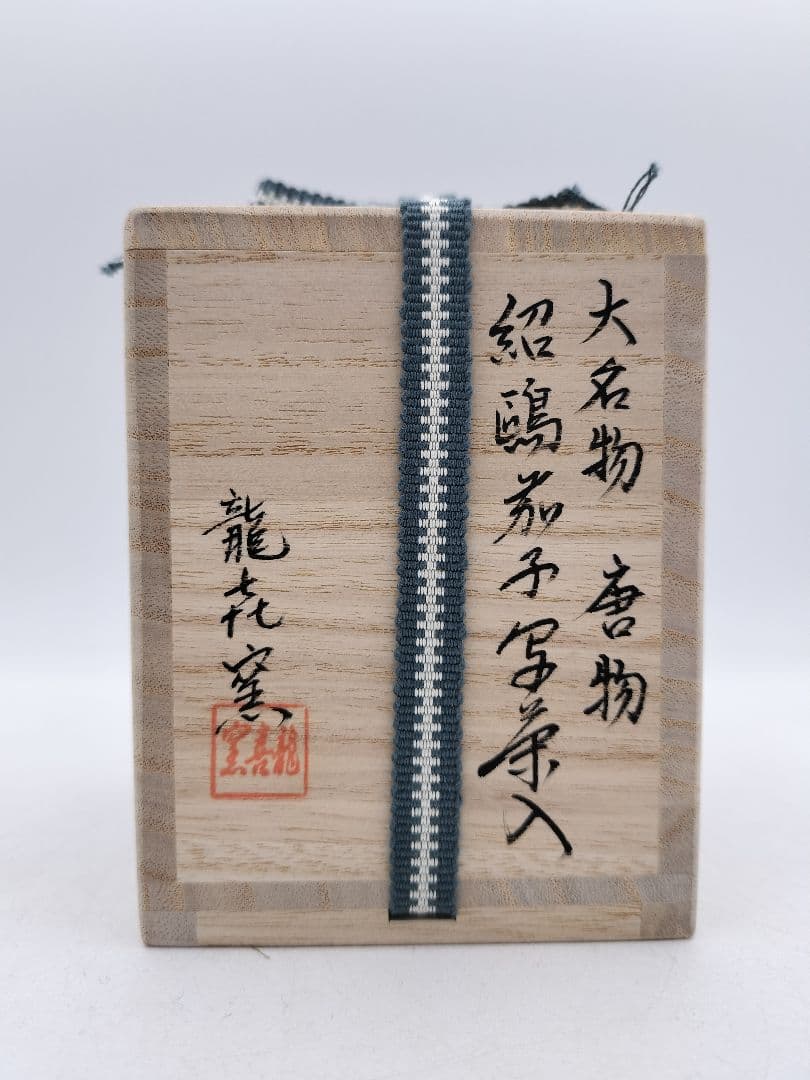 大名物　唐物
紹鷗茄子写茶入
龍㐂窯
龍喜窯